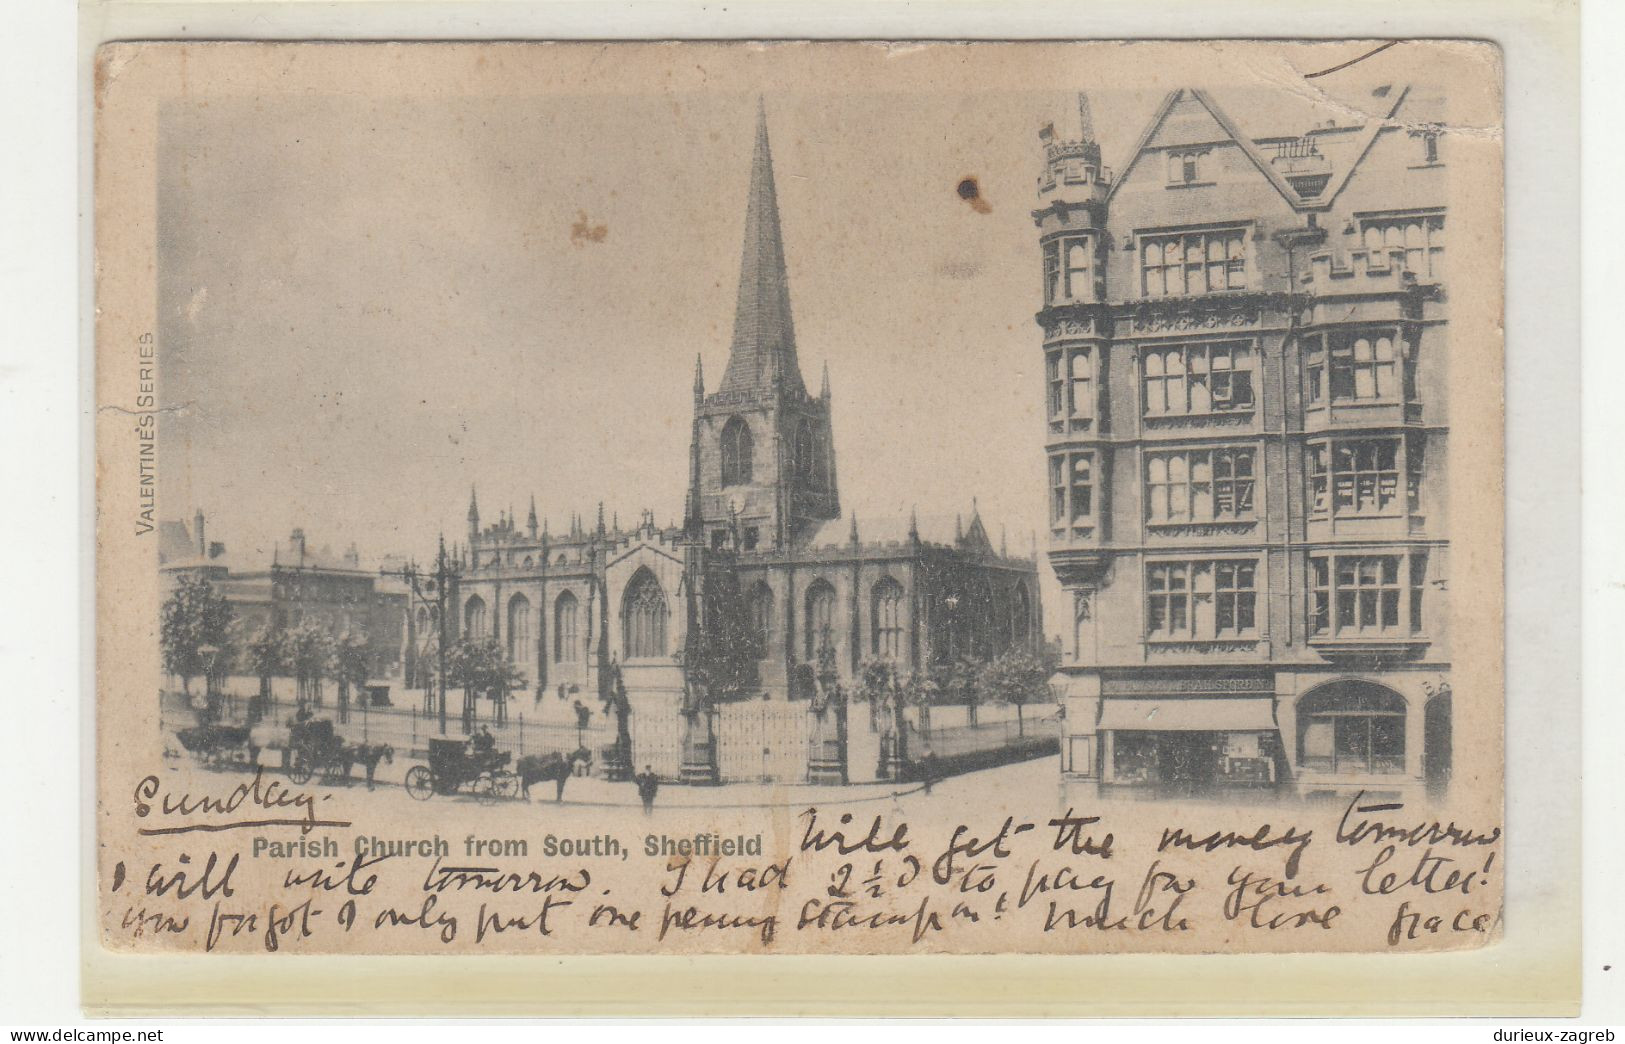 VALENTINE'S SERIES
Sunday.
Parish Church from South, Sheffield
Will get the money tomorrow
I will write tomorrow. I had 2½D to pay for your letter!
you forgot & only put one penny stamp on! Much love Grace
www.delcampe.net
durieux-zagreb